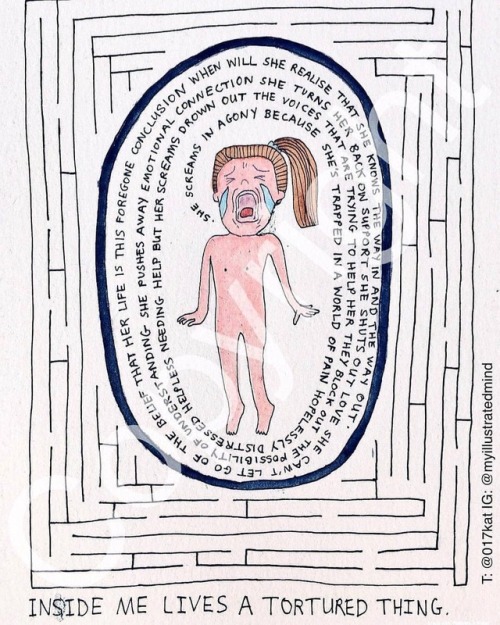 SHE SCREAMS IN AGONY BECAUSE SHE'S TRAPPED IN A WORLD OF PAIN HOPELESSLY DISTRESSED HELPLESS NEEDING HELP BUT HER SCREAMS DROWN OUT THE VOICES THAT ARE TRYING TO HELP HER THEY BLOCK OUT THE POSSIBILITY OF UNDERSTANDING SHE PUSHES AWAY EMOTIONAL CONNECTION SHE TURNS HER BACK ON SUPPORT SHE SHUTS OUT LOVE SHE CAN'T LET GO OF THE BELIEF THAT HER LIFE IS THIS FOREGONE CONCLUSION WHEN WILL SHE REALISE THAT SHE KNOWS THE WAY IN AND THE WAY OUT.
INSIDE ME LIVES A TORTURED THING.
T: @017kat IG: @myillustratedmind